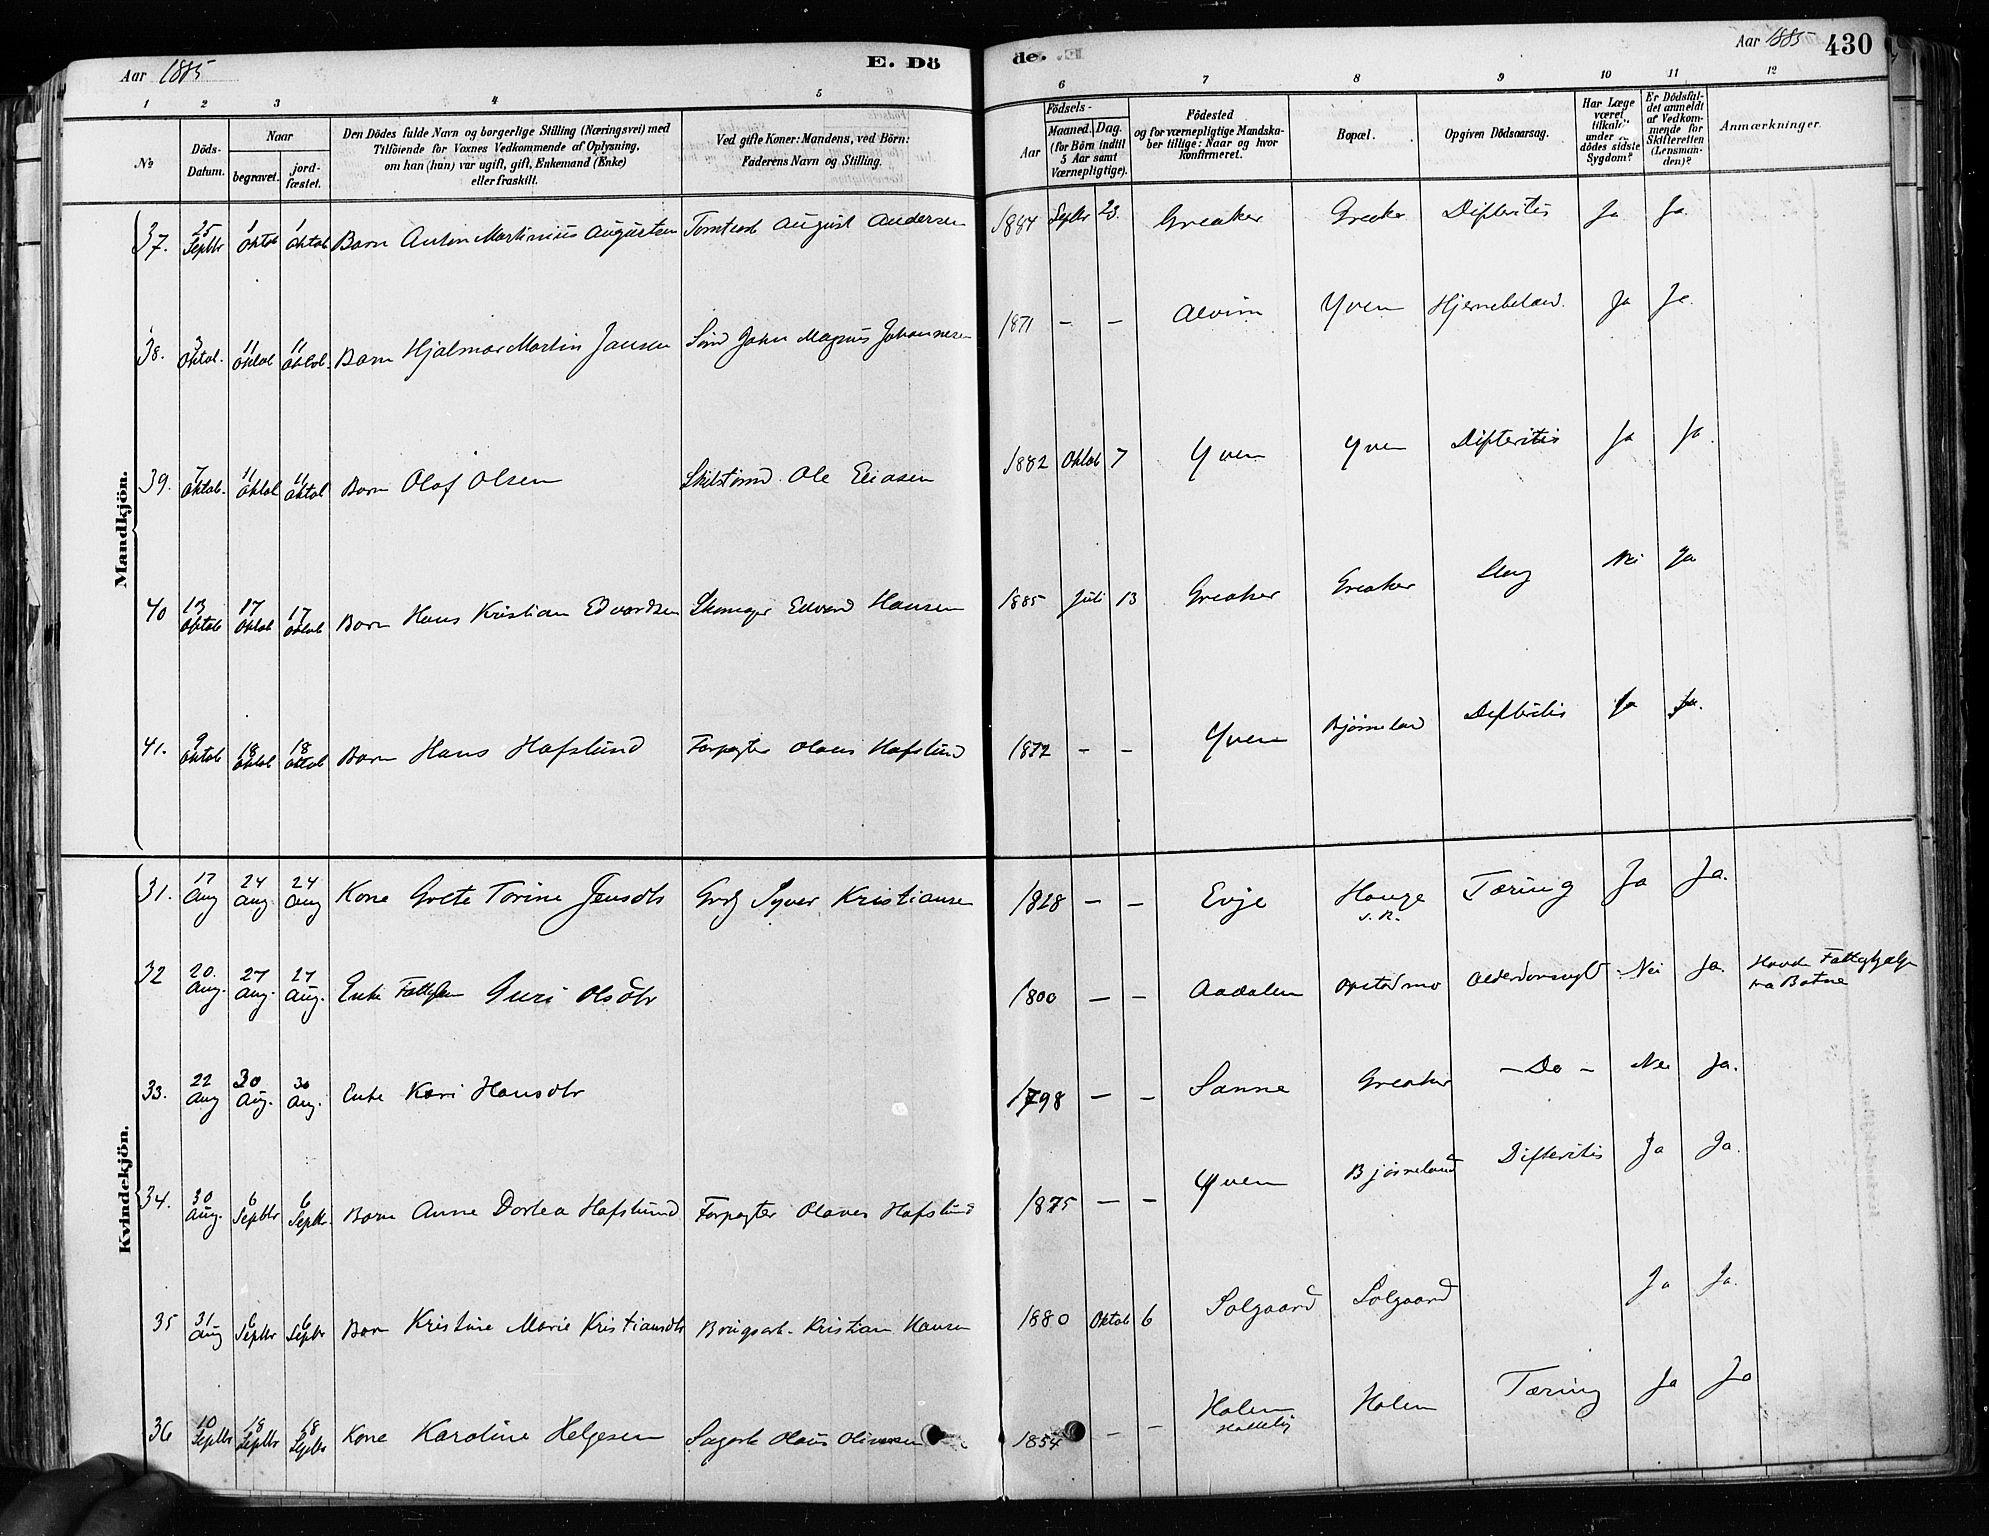 Aar 1885 E. Dö de. Aar 1885 430
1 2 3 4 5 6 7 8 9 10 11 12
No
Döds-Datum.
Naar
begravet.
jord-fæstet.
Den Dödes fulde Navn og borgerlige Stilling (Næringsvei) med
Tilföiende for Voxnes Vedkommende af Oplysning,
om han (hun) var ugift, gift, Enkemand (Enke)
eller fraskilt.
Ved gifte Koner: Mandens, ved Börn:
Faderens Navn og Stilling.
Födsels-
Aar
Maaned. Dag.
(for Börn indtil
5 Aar samt
Værnepligtige).
Födested
og for værnepligtige Mandska-
ber tillige: Naar og hvor
konfirmeret.
Bopæl.
Opgiven Dödsaarsag.
Har Læge
været
tilkaldt
under
dödes sidste
Sygdom?
Er Dödsfal-
det anmeldt
af Vedkom-
mende for
Skifteretten
(Lensman-
den)?
Anmærkninger.
Mandkjön.
37. 25 Septbr 1 Oktob 1 Oktob Barn Anton Martinius Augustsen Tomtearb August Andersen 1884 Septbr 23. Greaker Greaker Difteritis Ja Ja.
38. 3 Oktob. 11 Oktob 11 Oktob. Barn Hjalmar Martin Jansen Smd John Magnus Johannesen 1871 — — Alvim Yven Hjernebetænd. Ja Ja.
39. 7 Oktob. 11 Oktob 11 Oktob Barn Olaf Olsen Ole Eliasen 1882 Oktob 7 Yven Yven Difteritis Ja Ja.
40 13 Oktob 17 Oktob 17 Oktob Barn Hans Kristian Edvardsen Skomager Edvard Hansen 1885 Juli 13 Greaker Greaker Slag Nei Ja
41. 9 Oktob 18 Oktob 18 Oktob Barn Hans Hafslund Forpagter Olaus Hafslund 1872 — — Yven Bjørneland Difteritis Ja Ja.
Kvindekjön.
31. 17 Aug 24 Aug. 24 Aug Kone Grete Torine Jensdtr Grdr Syver Kristiansen 1828 — — Evje Hauge s. R. Tæring Ja Ja.
32 20. Aug. 27 Aug. 27 Aug. Enke Fattiglem Guri Olsdtr 1800 — — Aadalen Opstadmo Alderdomssvagh Nei Ja. Havde Fattighjælp
fra Botne
33. 22 Aug 30 Aug. 30 Aug. Enke Kari Hansdtr 1798 — — Sanne Greaker — Do — Nei Ja.
34. 30 Aug. 6 Septbr 6 Septbr. Barn Anne Dortea Hafslund Forpagter Olaves Hafslund 1875 — — Yven Bjørneland Difteritis Ja Ja.
35 31 Aug 6 Septbr 6 Septbr Barn Kristine Marie Kristiansdtr Brugsarb. Kristian Hansen 1880 Oktob 6 Solgaard Solgaard Ja Ja.
36 10 Septbr 18 Septbr 18 Septbr Kone Karoline Helgesen Sagarb Olaus Oliversen 1854 — — Holen Holen Tæring Ja Ja